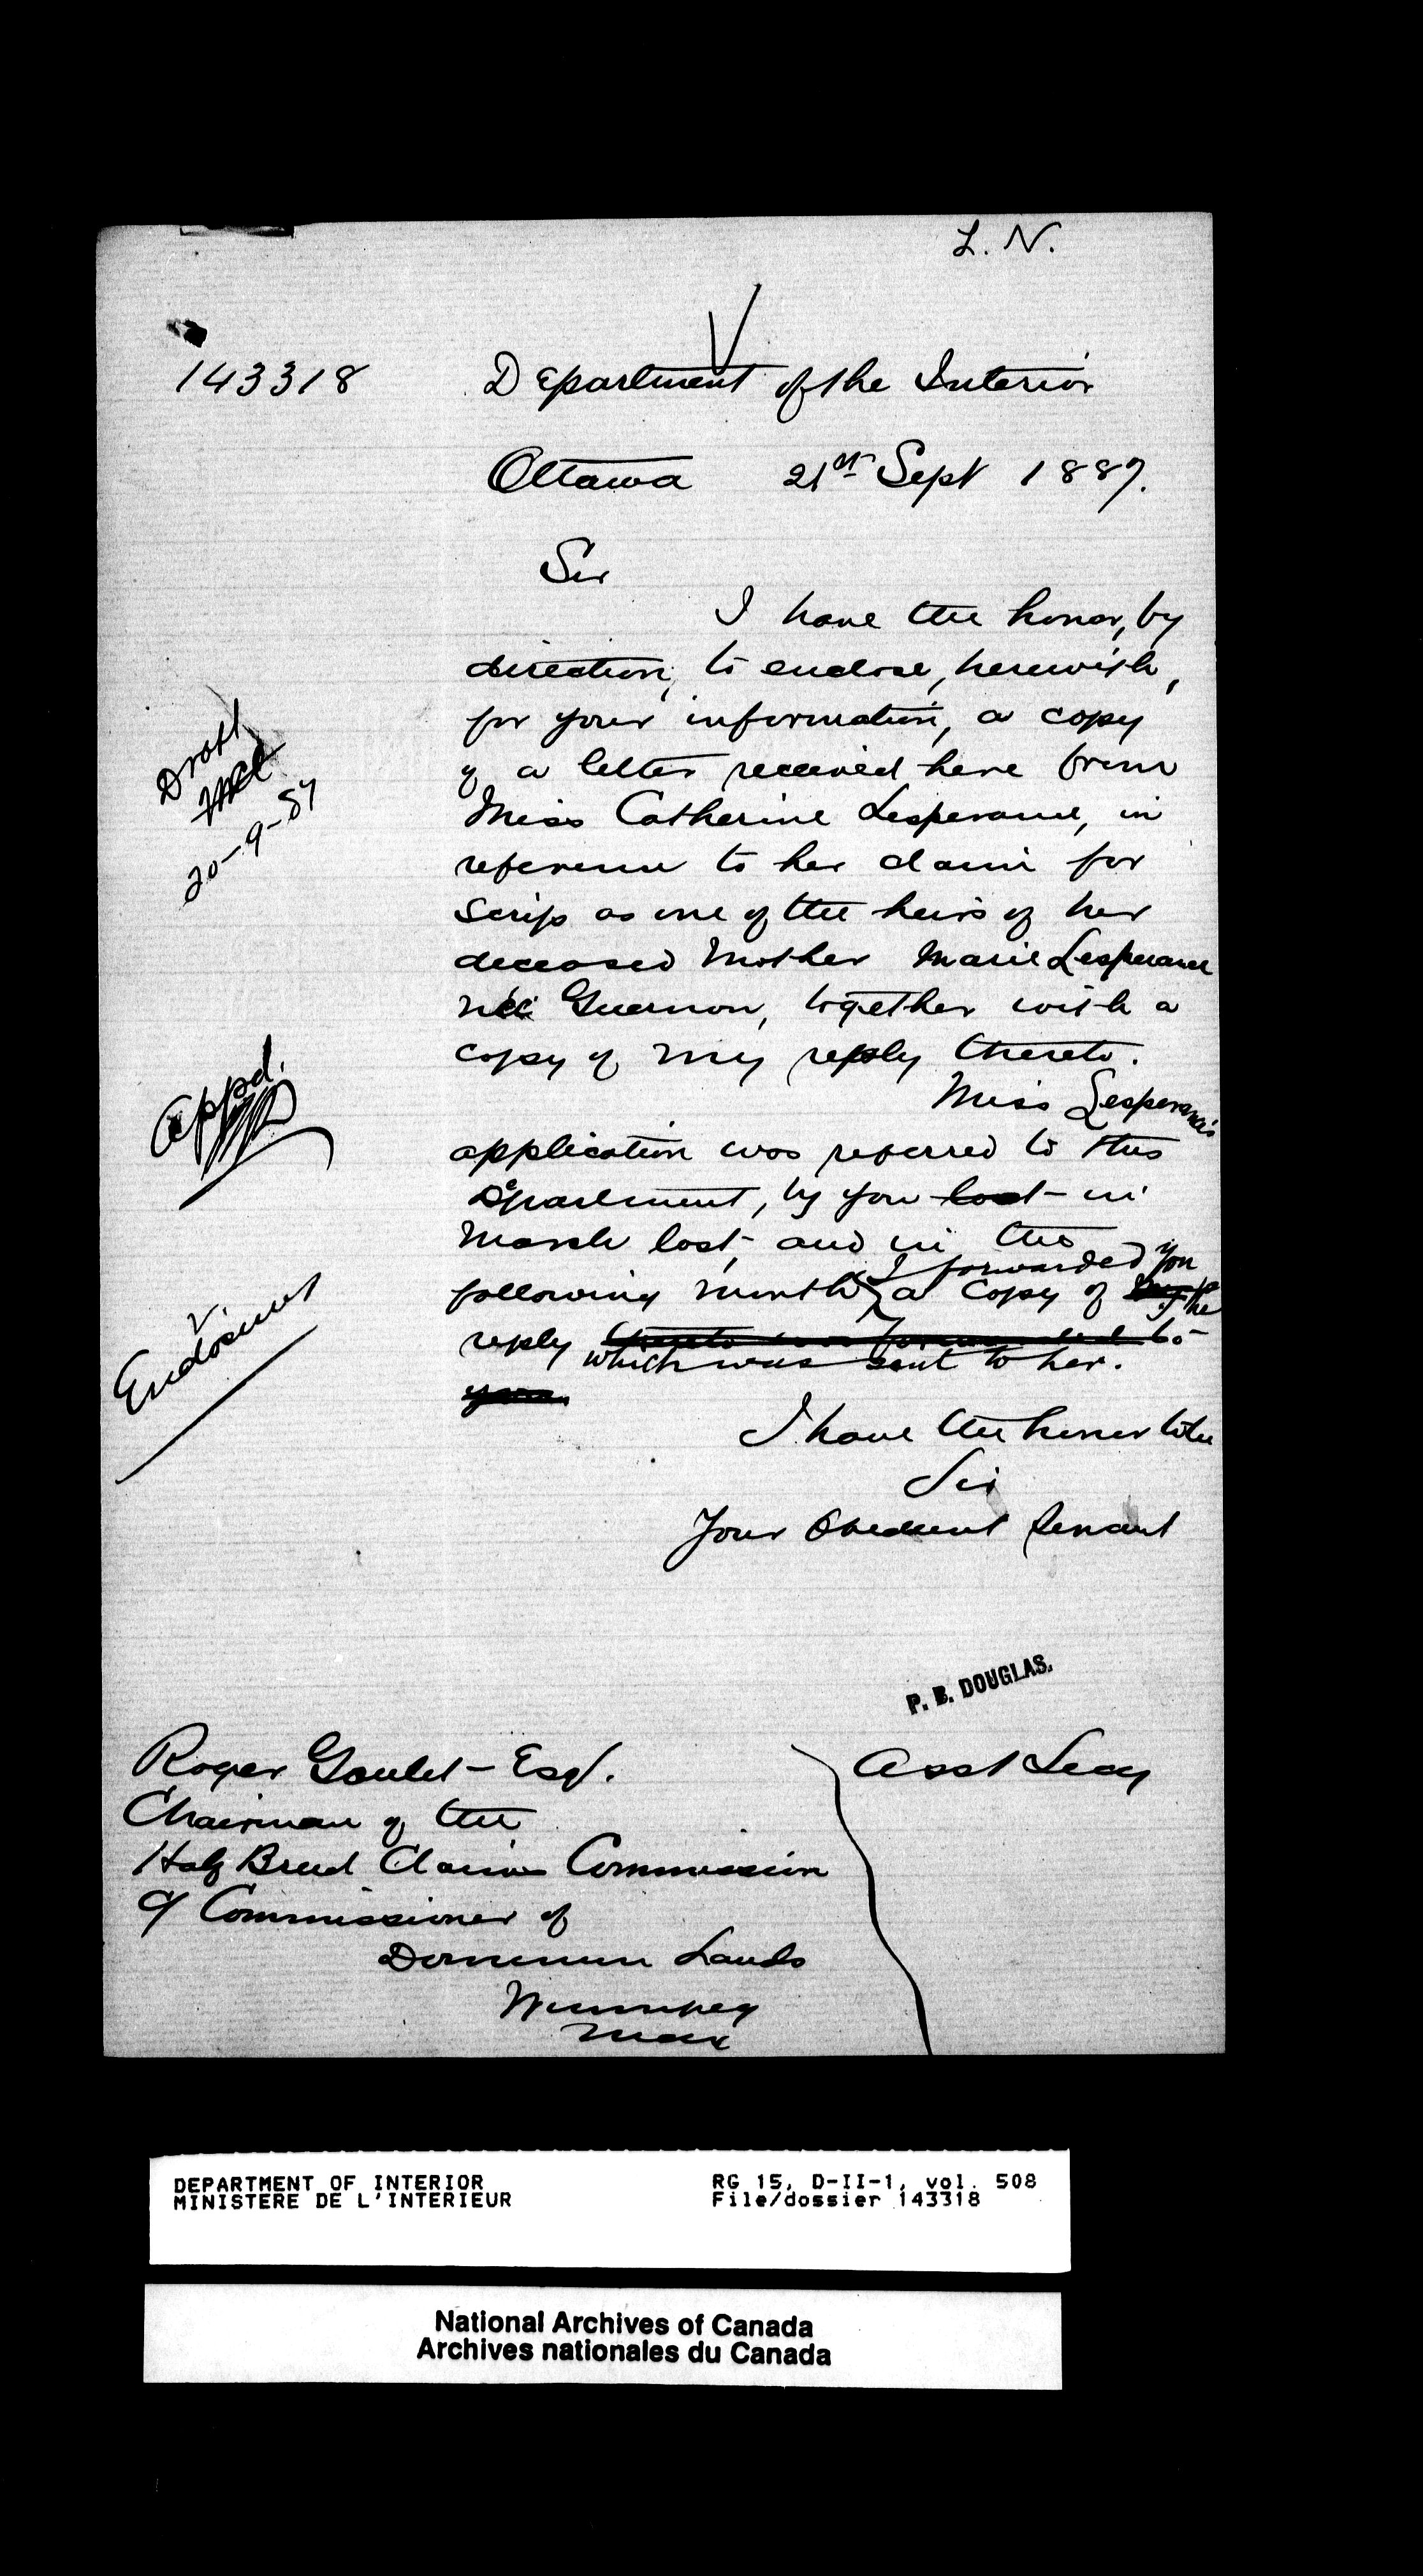 L. N.
143318
Department of the Interior
Ottawa 21st Sept 1887.
Sir
I have the honor, by
direction, to enclose, herewith,
for your information, a copy
of a letter received here from
Miss Catherine Lesperance, in
reference to her claim for
Scrip as one of the heirs of her
deceased Mother Marie Lesperance
née Guernon, together with a
copy of my reply thereto.
Miss Lesperance's
application was referred to this
Department, by you last in
March last, and in the
following month I forwarded you
a copy of the
reply thereto was forwarded to
which was sent to her.
you.
I have the honor to be
Sir
Your Obedient Servant
Draft
20-9-87
Appd.
Enclosures
P. B. DOUGLAS.
Asst Secy
Roger Goulet Esq.
Chairman of the
Half Breed Claims Commission
c/ Commissioner of
Dominion Lands
Winnipeg
Man
DEPARTMENT OF INTERIOR
MINISTERE DE L'INTERIEUR
RG 15, D-II-1, vol. 508
File/dossier 143318
National Archives of Canada
Archives nationales du Canada